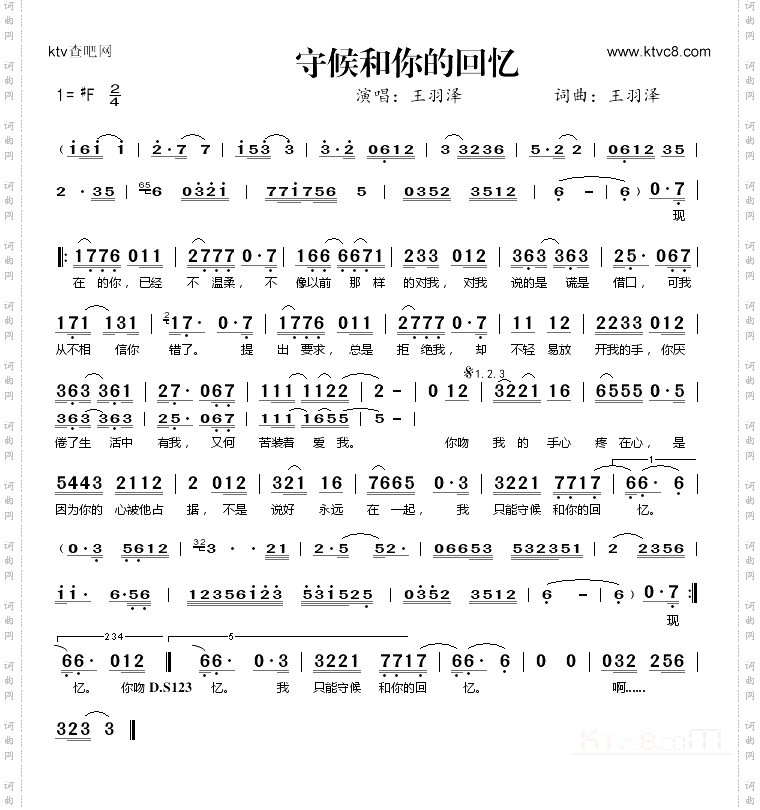 ktv查吧网
守候和你的回忆
www.ktvc8.com
1= #F 2/4
演唱：王羽泽 词曲：王羽泽
（i6i i | 2·7 7 | i53 3 | 3·2 0612 | 3 3236 | 5·2 2 | 0612 35 |
2 · 35 | 65 6 032i | 77i756 5 | 0352 3512 | 6 - | 6 ）0·7 |
现
‖: 1776 011 | 2777 0·7 | 166 6671 | 233 012 | 363 363 | 25· 067 |
在 的你，已经 不 温柔，不 像以前 那 样 的对我，对我 说的是 谎是 借口，可我
171 131 | 2 17· 0·7 | 1776 011 | 2777 0·7 | 11 12 | 2233 012 |
从不相 信你 错了。 提 出 要求，总是 拒 绝我，却 不轻 易放 开我的手，你厌
𝄋1.2.3
363 361 | 27· 067 | 111 1122 | 2 - | 0 12 | 3221 16 | 6555 0·5 |
363 363 | 25· 067 | 111 1655 | 5 - |
倦了生 活中 有我，又何 苦装着 爱 我。 你吻 我 的 手心 疼 在心，是
1
5443 2112 | 2 012 | 321 16 | 7665 0·3 | 3221 7717 | 66· 6 |
因为你的 心被他占 据，不是 说好 永远 在 一起， 我 只能守候 和你的回 忆。
（0·3 5612 | 32 3 · · 21 | 2·5 52· | 06653 532351 | 2 2356 |
ii· 6·56 | 12356i2i3 | 53i5125 | 0352 3512 | 6 - | 6 ）0·7 :‖
现
234 5
66· 012 ‖ 66· 0·3 | 3221 7717 | 66· 6 | 0 0 | 032 256 |
忆。 你吻 D.S123 忆。 我 只能守候 和你的回 忆。 啊......
323 3 ‖
KTvc8.com
词曲网